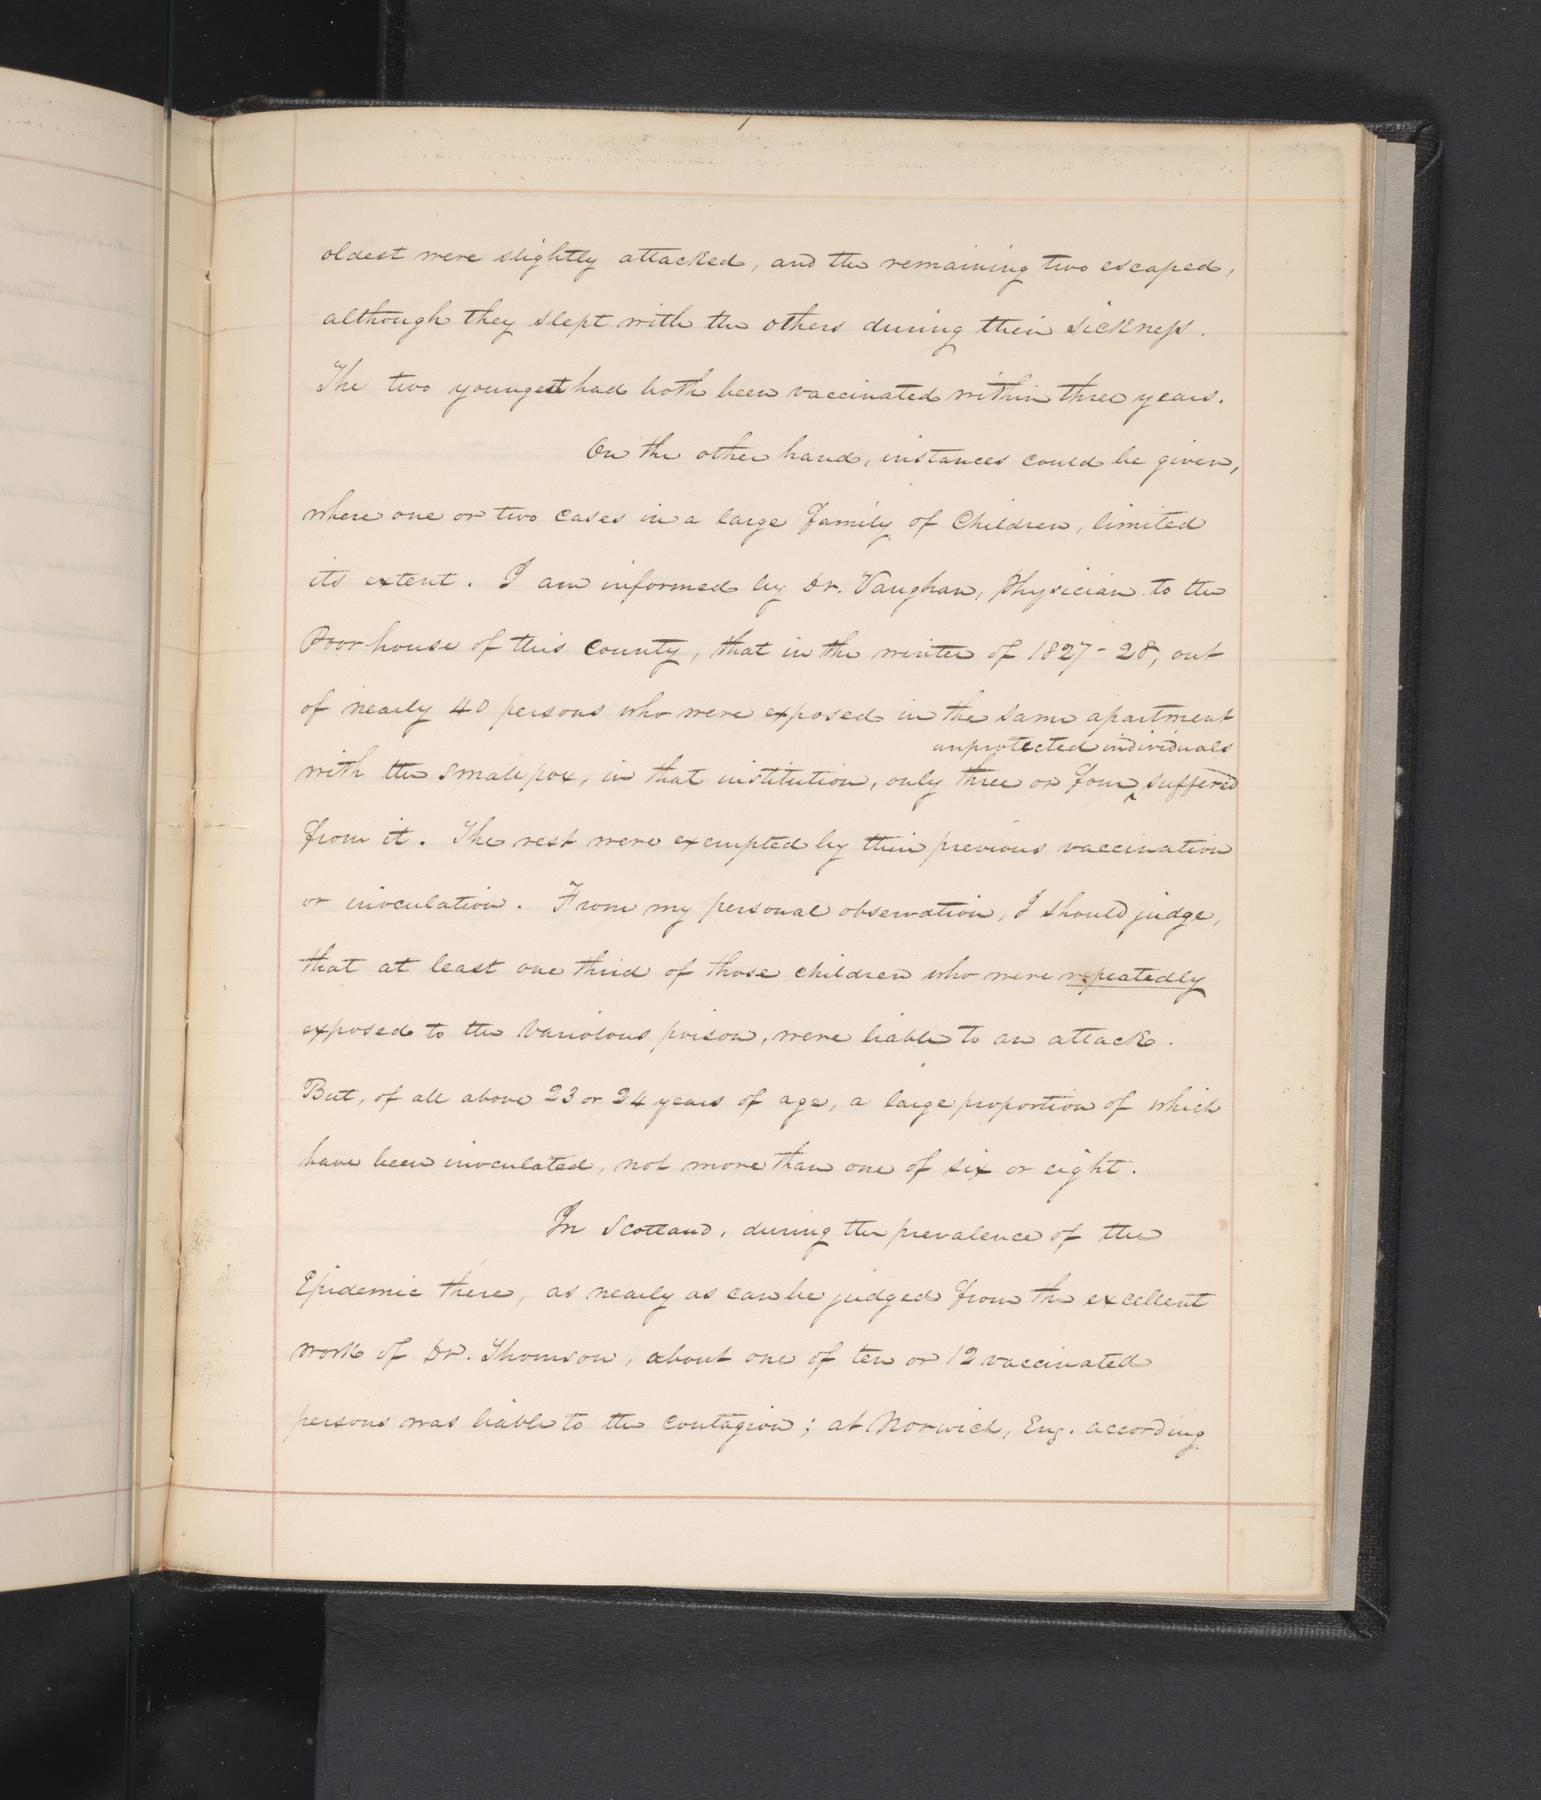 oldest were slightly attacked, and the remaining two escaped,
although they slept with the others during their sickness.
The two youngest had both been vaccinated within three years.
On the other hand, instances could be given,
where one or two cases in a large family of Children, limited
its extent. I am informed by Dr. Vaughan, Physician to the
Poor house of this County, that in the winter of 1827-28, out
of nearly 40 persons who were exposed in the same apartment
unprotected individuals
with the small pox, in that institution, only three or four ‸ suffered
from it. The rest were exempted by their previous vaccination
or inoculation. From my personal observation, I should judge,
that at least one third of those children who were repeatedly
exposed to the Variolous poison, were liable to an attack.
But, of all above 23 or 24 years of age, a large proportion of which
have been inoculated, not more than one of six or eight.
In Scotland, during the prevalence of the
Epidemic there, as nearly as can be judged from the excellent
work of Dr. Thomson, about one of ten or 12 vaccinated
persons was liable to the contagion; at Norwich, Eng. according